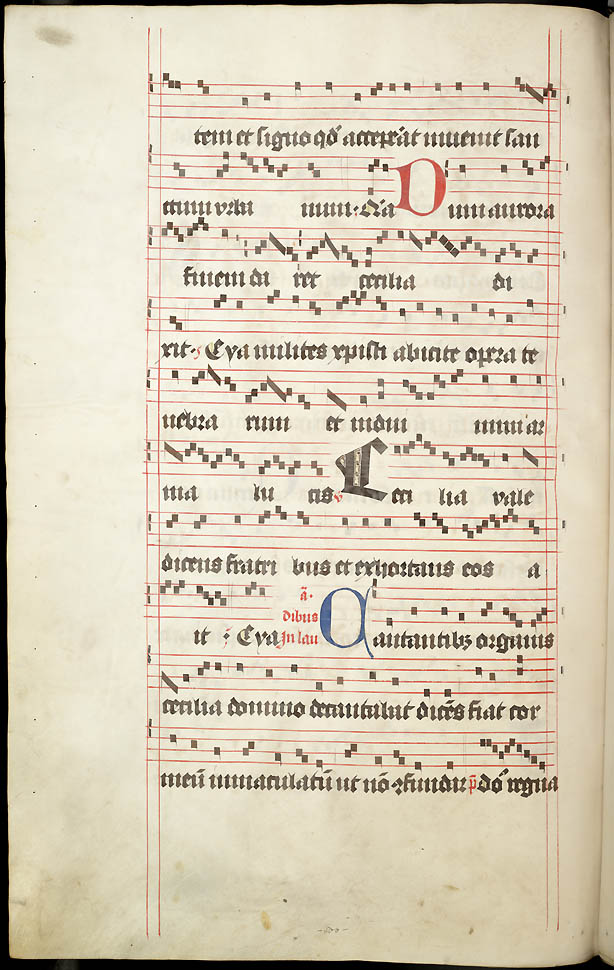 tem et signo qd̄ acceꝑāt inuenit san
ctum vrba num · Gl̄a Dum aurora
finem da ret cecilia di
xit · Eya milites xp̄isti abicite opera te
nebra rum et indui mini ar
ma lu cis ℣ Ceci lia vale
dicens fratri bus et exhortans eos a
it : Eya In lau dibus a᷒ · Cantantibꝫ organis
cecilia domino decantabat dicēs fiat cor
meū inmaculatū ut nō ꝯfundar p̄ Dn̄s regna